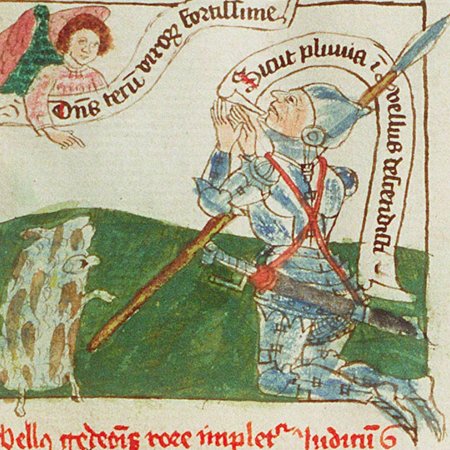 Dns tecu virorz fortissime
Sicut pluuia i vellus descendisti
Vellus gedeōis rore impletr Iudicū 6